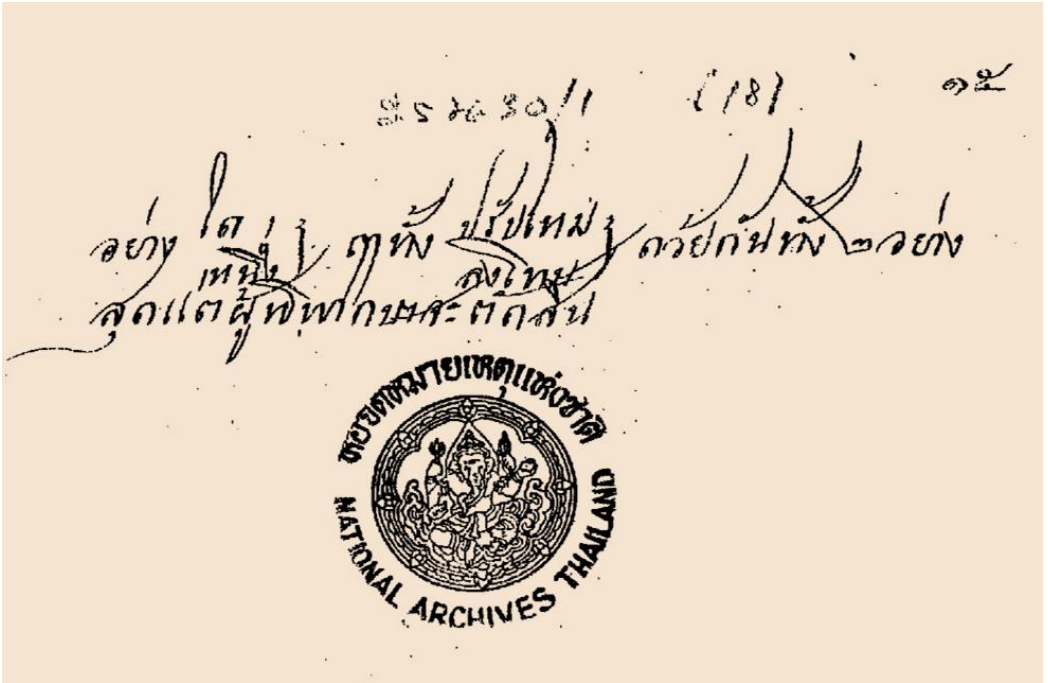 30/1 [18] ๑๕
อย่าง ใด ฤๅทั้ง ปรับไหม ด้วยกันทั้ง ๒ อย่าง
หนึ่ง ลงโทษ
สุดแต่ผู้พิพากษาจะตัดสิน
หอจดหมายเหตุแห่งชาติ
NATIONAL ARCHIVES THAILAND